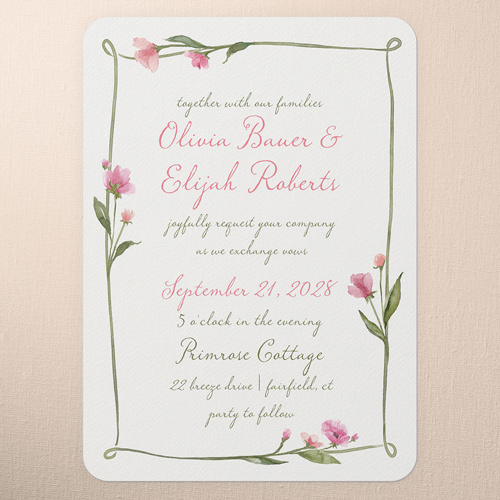 together with our families
Olivia Bauer &
Elijah Roberts
joyfully request your company
as we exchange vows
September 21, 2028
5 o'clock in the evening
Primrose Cottage
22 breeze drive | fairfield, ct
party to follow